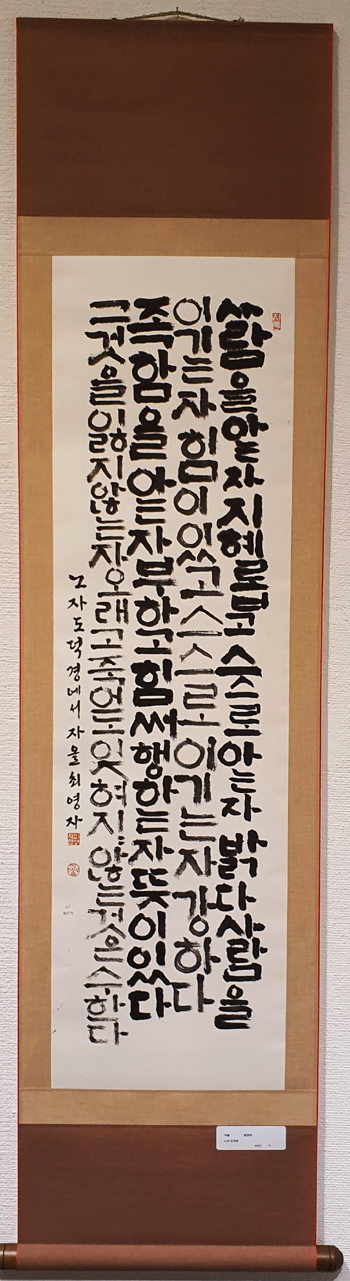 사람을아는자지혜롭고스스로아는자밝다사람을
이기는자힘이있고스스로이기는자강하다
족함을아는자부하고힘써행하는자뜻이있다
그것을잃지않는자오래고죽어도잊혀지않는것은수한다
노자도덕경에서자믈최영자